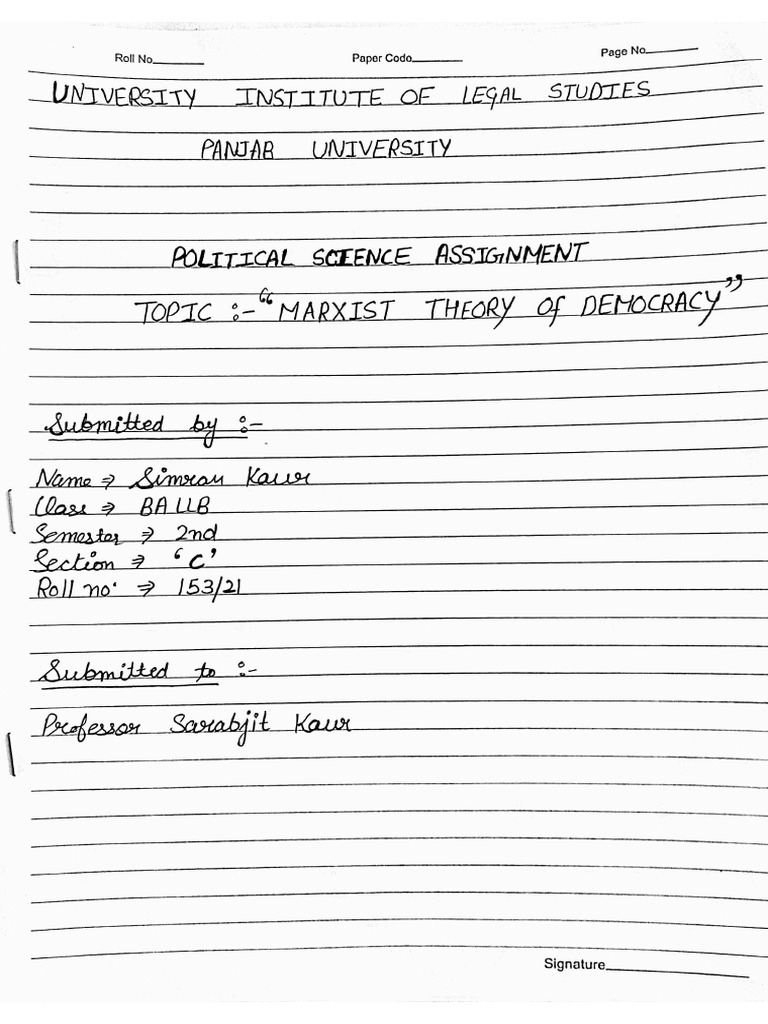 Roll No. Paper Code Page No.
UNIVERSITY INSTITUTE OF LEGAL STUDIES
PANJAB UNIVERSITY
POLITICAL SCIENCE ASSIGNMENT
TOPIC :- "MARXIST THEORY Of DEMOCRACY"
Submitted by :-
Name ⇒ Simran Kaur
Class ⇒ BA LLB
Semester ⇒ 2nd
Section ⇒ 'C'
Roll no. ⇒ 153/21
Submitted to :-
Professor Sarabjit Kaur
Signature